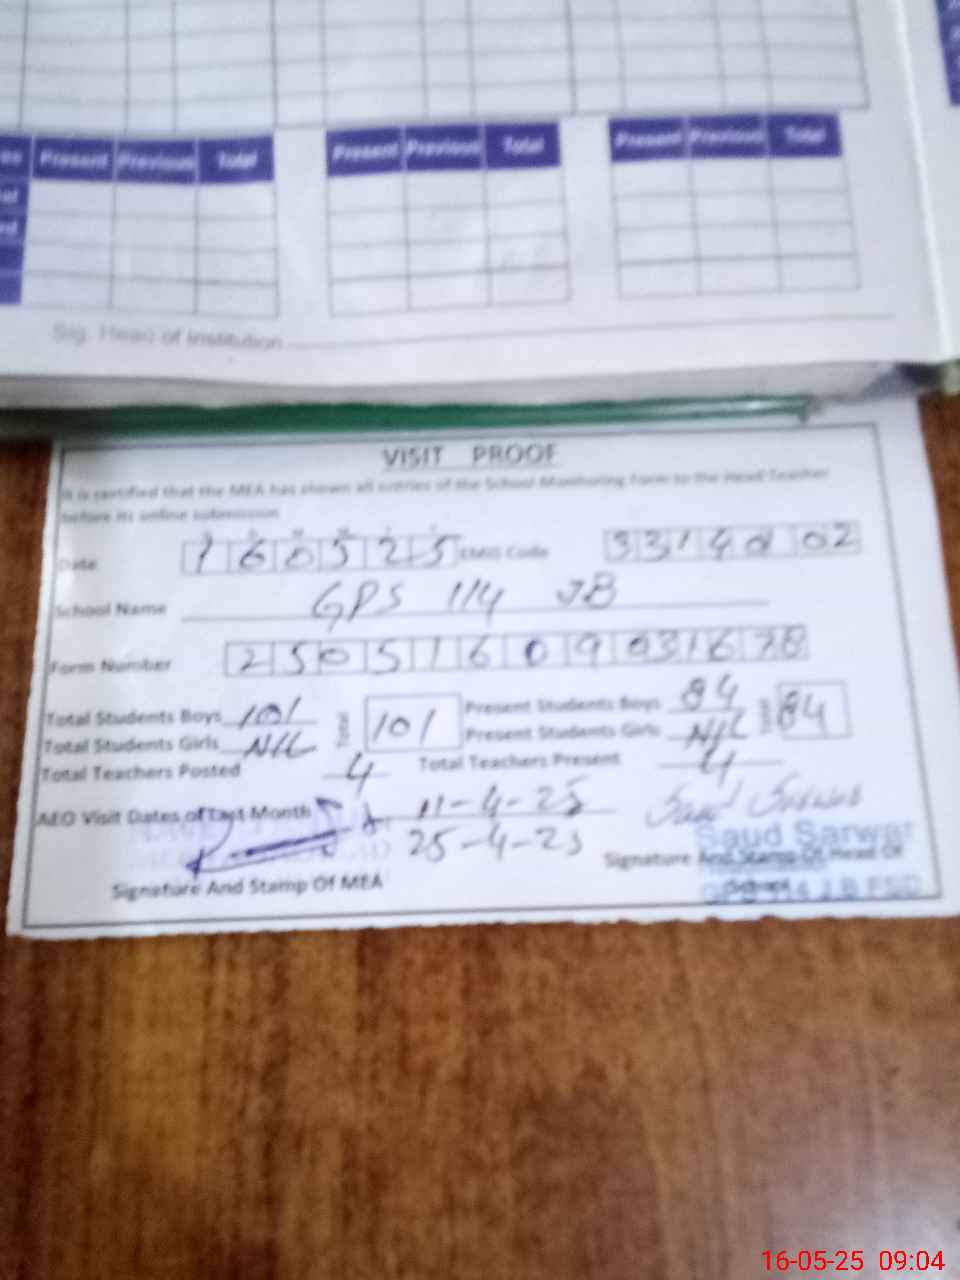 Present Previous Total
Present Previous Total
Present Previous Total
Sig. Head of Institution
VISIT PROOF
It is certified that the MEA has shown all entries of the School Monitoring Form to the Head Teacher
before its online submission
Date 160525 EMIS Code 33140002
School Name GPS 114 JB
Form Number
Total Students Boys 101 Total 101 Present Students Boys 84 84
Total Students Girls NIL Present Students Girls NIL
Total Teachers Posted 4 Total Teachers Present 4
AEO Visit Dates of Last Month 11-4-25
25-4-25
Saud Sarwar
Signature And Stamp Of MEA
Signature And Stamp Of Head Of
School
GPS 114 J.B FSD
16-05-25 09:04